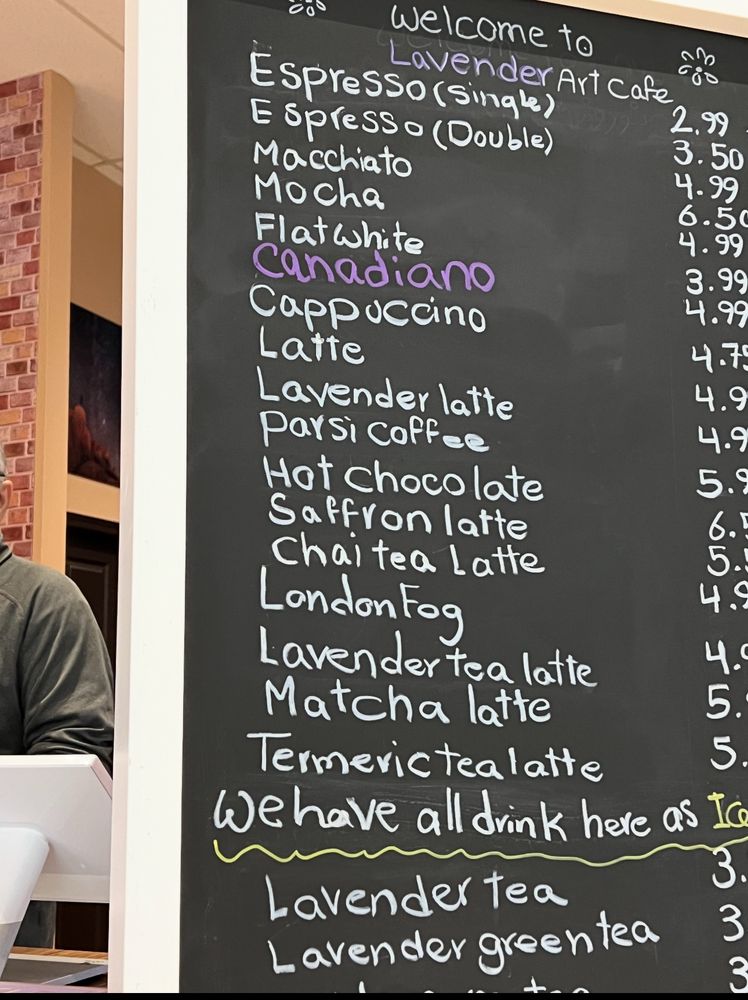 Welcome to
Lavender Art Cafe
Espresso (Single) 2.99
Espresso (Double) 3.50
Macchiato 4.99
Mocha 6.50
Flat white 4.99
Canadiano 3.99
Cappuccino 4.99
Latte 4.75
Lavender latte 4.9
Parsi coffee 4.9
Hot chocolate 5.9
Saffron latte 6.5
Chai tea Latte 5.5
London Fog 4.9
Lavender tea latte 4.9
Matcha latte 5.
Termeric tea latte 5.
We have all drink here as Ice
Lavender tea 3.
Lavender green tea 3
3